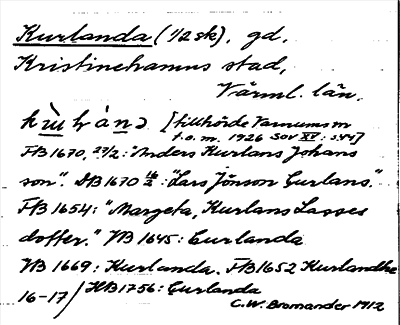 Kurlanda (1/2 sk), gd,
Kristinehamns stad,
Värml. län.
[tillhörde Varnums sn
t.o.m. 1926 SOV XV: s.44]
FB 1670, 27/2: "Anders Kurlans Johans
son". DB 1670 16/2: "Lars Jönson Curlans."
FB 1654: "Margeta, Kurlans Lasses
dotter." VB 1645: Curlanda
VB 1669: Kurlanda. FB 1652 Kurlandhe
16-17/ HB 1756: Curlanda
C.W. Bromander 1912